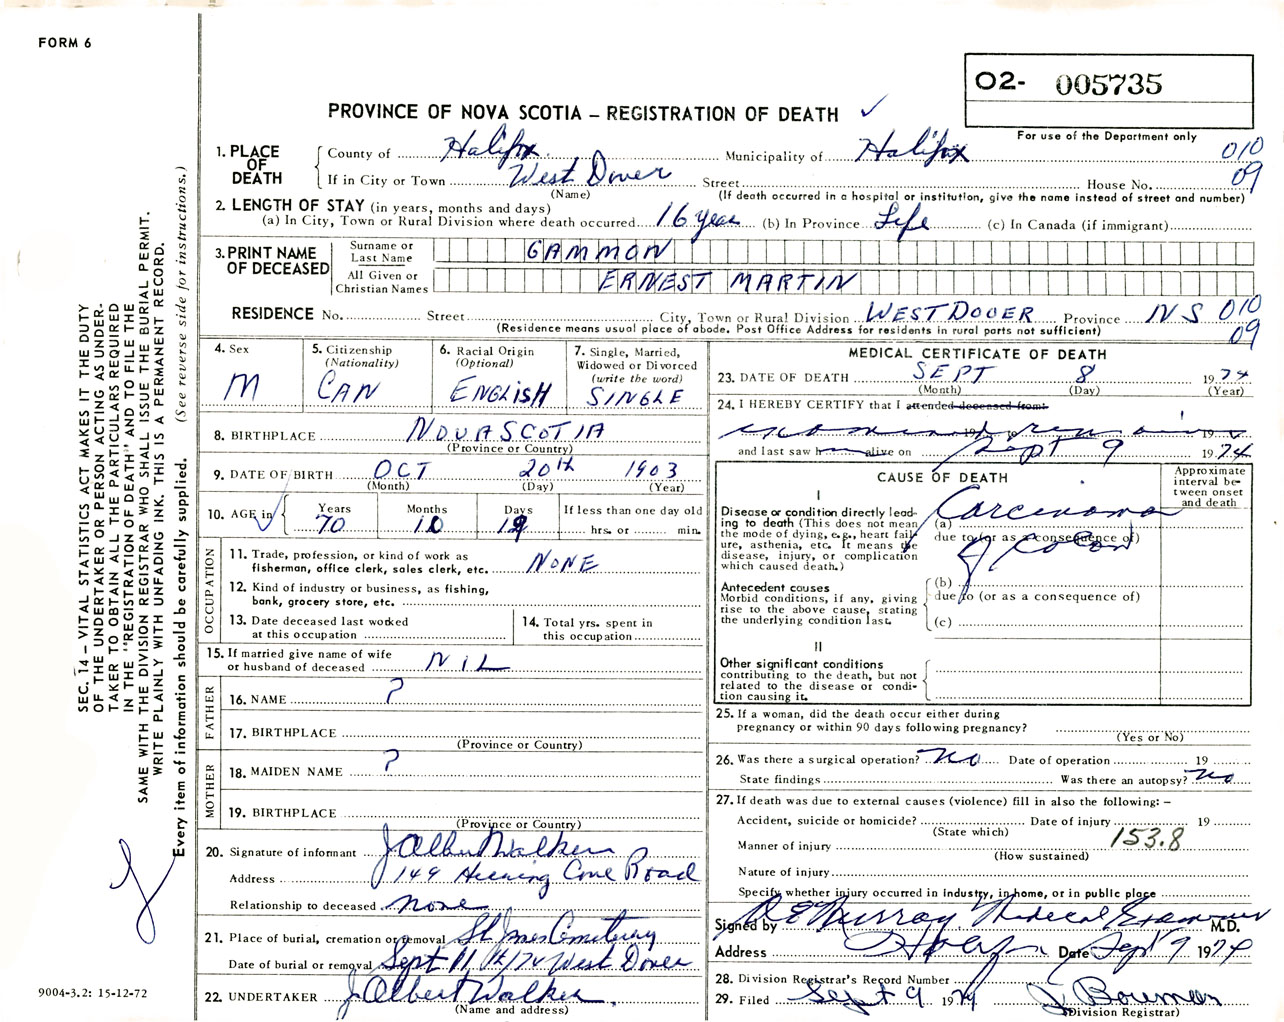 FORM 6
O2- 005735
PROVINCE OF NOVA SCOTIA – REGISTRATION OF DEATH ✓
For use of the Department only
1. PLACE OF DEATH
County of Halifax Municipality of Halifax 010
If in City or Town West Dover Street House No. 09
(Name) (If death occurred in a hospital or institution, give the name instead of street and number)
2. LENGTH OF STAY (in years, months and days)
(a) In City, Town or Rural Division where death occurred 16 years (b) In Province Life (c) In Canada (if immigrant)
3. PRINT NAME OF DECEASED
Surname or Last Name GAMMON
All Given or Christian Names ERNEST MARTIN
RESIDENCE No. Street City, Town or Rural Division WEST DOVER Province N S 010
(Residence means usual place of abode. Post Office Address for residents in rural parts not sufficient) 09
4. Sex M
5. Citizenship (Nationality) CAN
6. Racial Origin (Optional) ENGLISH
7. Single, Married, Widowed or Divorced (write the word) SINGLE
8. BIRTHPLACE NOVA SCOTIA
(Province or Country)
9. DATE OF BIRTH OCT 20th 1903
(Month) (Day) (Year)
10. AGE in Years 70 Months 10 Days 19 If less than one day old hrs. or min.
OCCUPATION
11. Trade, profession, or kind of work as
fisherman, office clerk, sales clerk, etc. NONE
12. Kind of industry or business, as fishing,
bank, grocery store, etc.
13. Date deceased last worked
at this occupation
14. Total yrs. spent in
this occupation
15. If married give name of wife
or husband of deceased NIL
FATHER
16. NAME ?
17. BIRTHPLACE
(Province or Country)
MOTHER
18. MAIDEN NAME ?
19. BIRTHPLACE
(Province or Country)
20. Signature of informant J Albert Walker
Address 149 Herring Cove Road
Relationship to deceased none
21. Place of burial, cremation or removal Cemetery
Date of burial or removal Sept 11th/74 West Dover
22. UNDERTAKER J Albert Walker
(Name and address)
MEDICAL CERTIFICATE OF DEATH
23. DATE OF DEATH SEPT 8 1974
(Month) (Day) (Year)
24. I HEREBY CERTIFY that I attended deceased from:
examined remains 19 to 19
and last saw h alive on Sept 9 1974
CAUSE OF DEATH
Approximate interval between onset and death
I
Disease or condition directly leading to death (This does not mean the mode of dying, e.g., heart failure, asthenia, etc. It means the disease, injury, or complication which caused death.)
(a) Carcinoma
due to (or as a consequence of)
of Colon
Antecedent causes
Morbid conditions, if any, giving rise to the above cause, stating the underlying condition last.
(b)
due to (or as a consequence of)
(c)
II
Other significant conditions
contributing to the death, but not
related to the disease or condi-
tion causing it.
25. If a woman, did the death occur either during
pregnancy or within 90 days following pregnancy?
(Yes or No)
26. Was there a surgical operation? No Date of operation 19
State findings Was there an autopsy? No
27. If death was due to external causes (violence) fill in also the following: –
Accident, suicide or homicide? Date of injury 19
(State which) 153.8
Manner of injury
(How sustained)
Nature of injury
Specify whether injury occurred in industry, in home, or in public place
Signed by Murray Medical Examiner M.D.
Address Halifax Date Sept 9 1974
28. Division Registrar's Record Number
29. Filed Sept 9 1974
(Division Registrar)
SEC. 14 – VITAL STATISTICS ACT MAKES IT THE DUTY
OF THE UNDERTAKER OR PERSON ACTING AS UNDER-
TAKER TO OBTAIN ALL THE PARTICULARS REQUIRED
IN THE "REGISTRATION OF DEATH" AND TO FILE THE
SAME WITH THE DIVISION REGISTRAR WHO SHALL ISSUE THE BURIAL PERMIT.
WRITE PLAINLY WITH UNFADING INK. THIS IS A PERMANENT RECORD.
Every item of information should be carefully supplied. (See reverse side for instructions.)
9004-3.2: 15-12-72